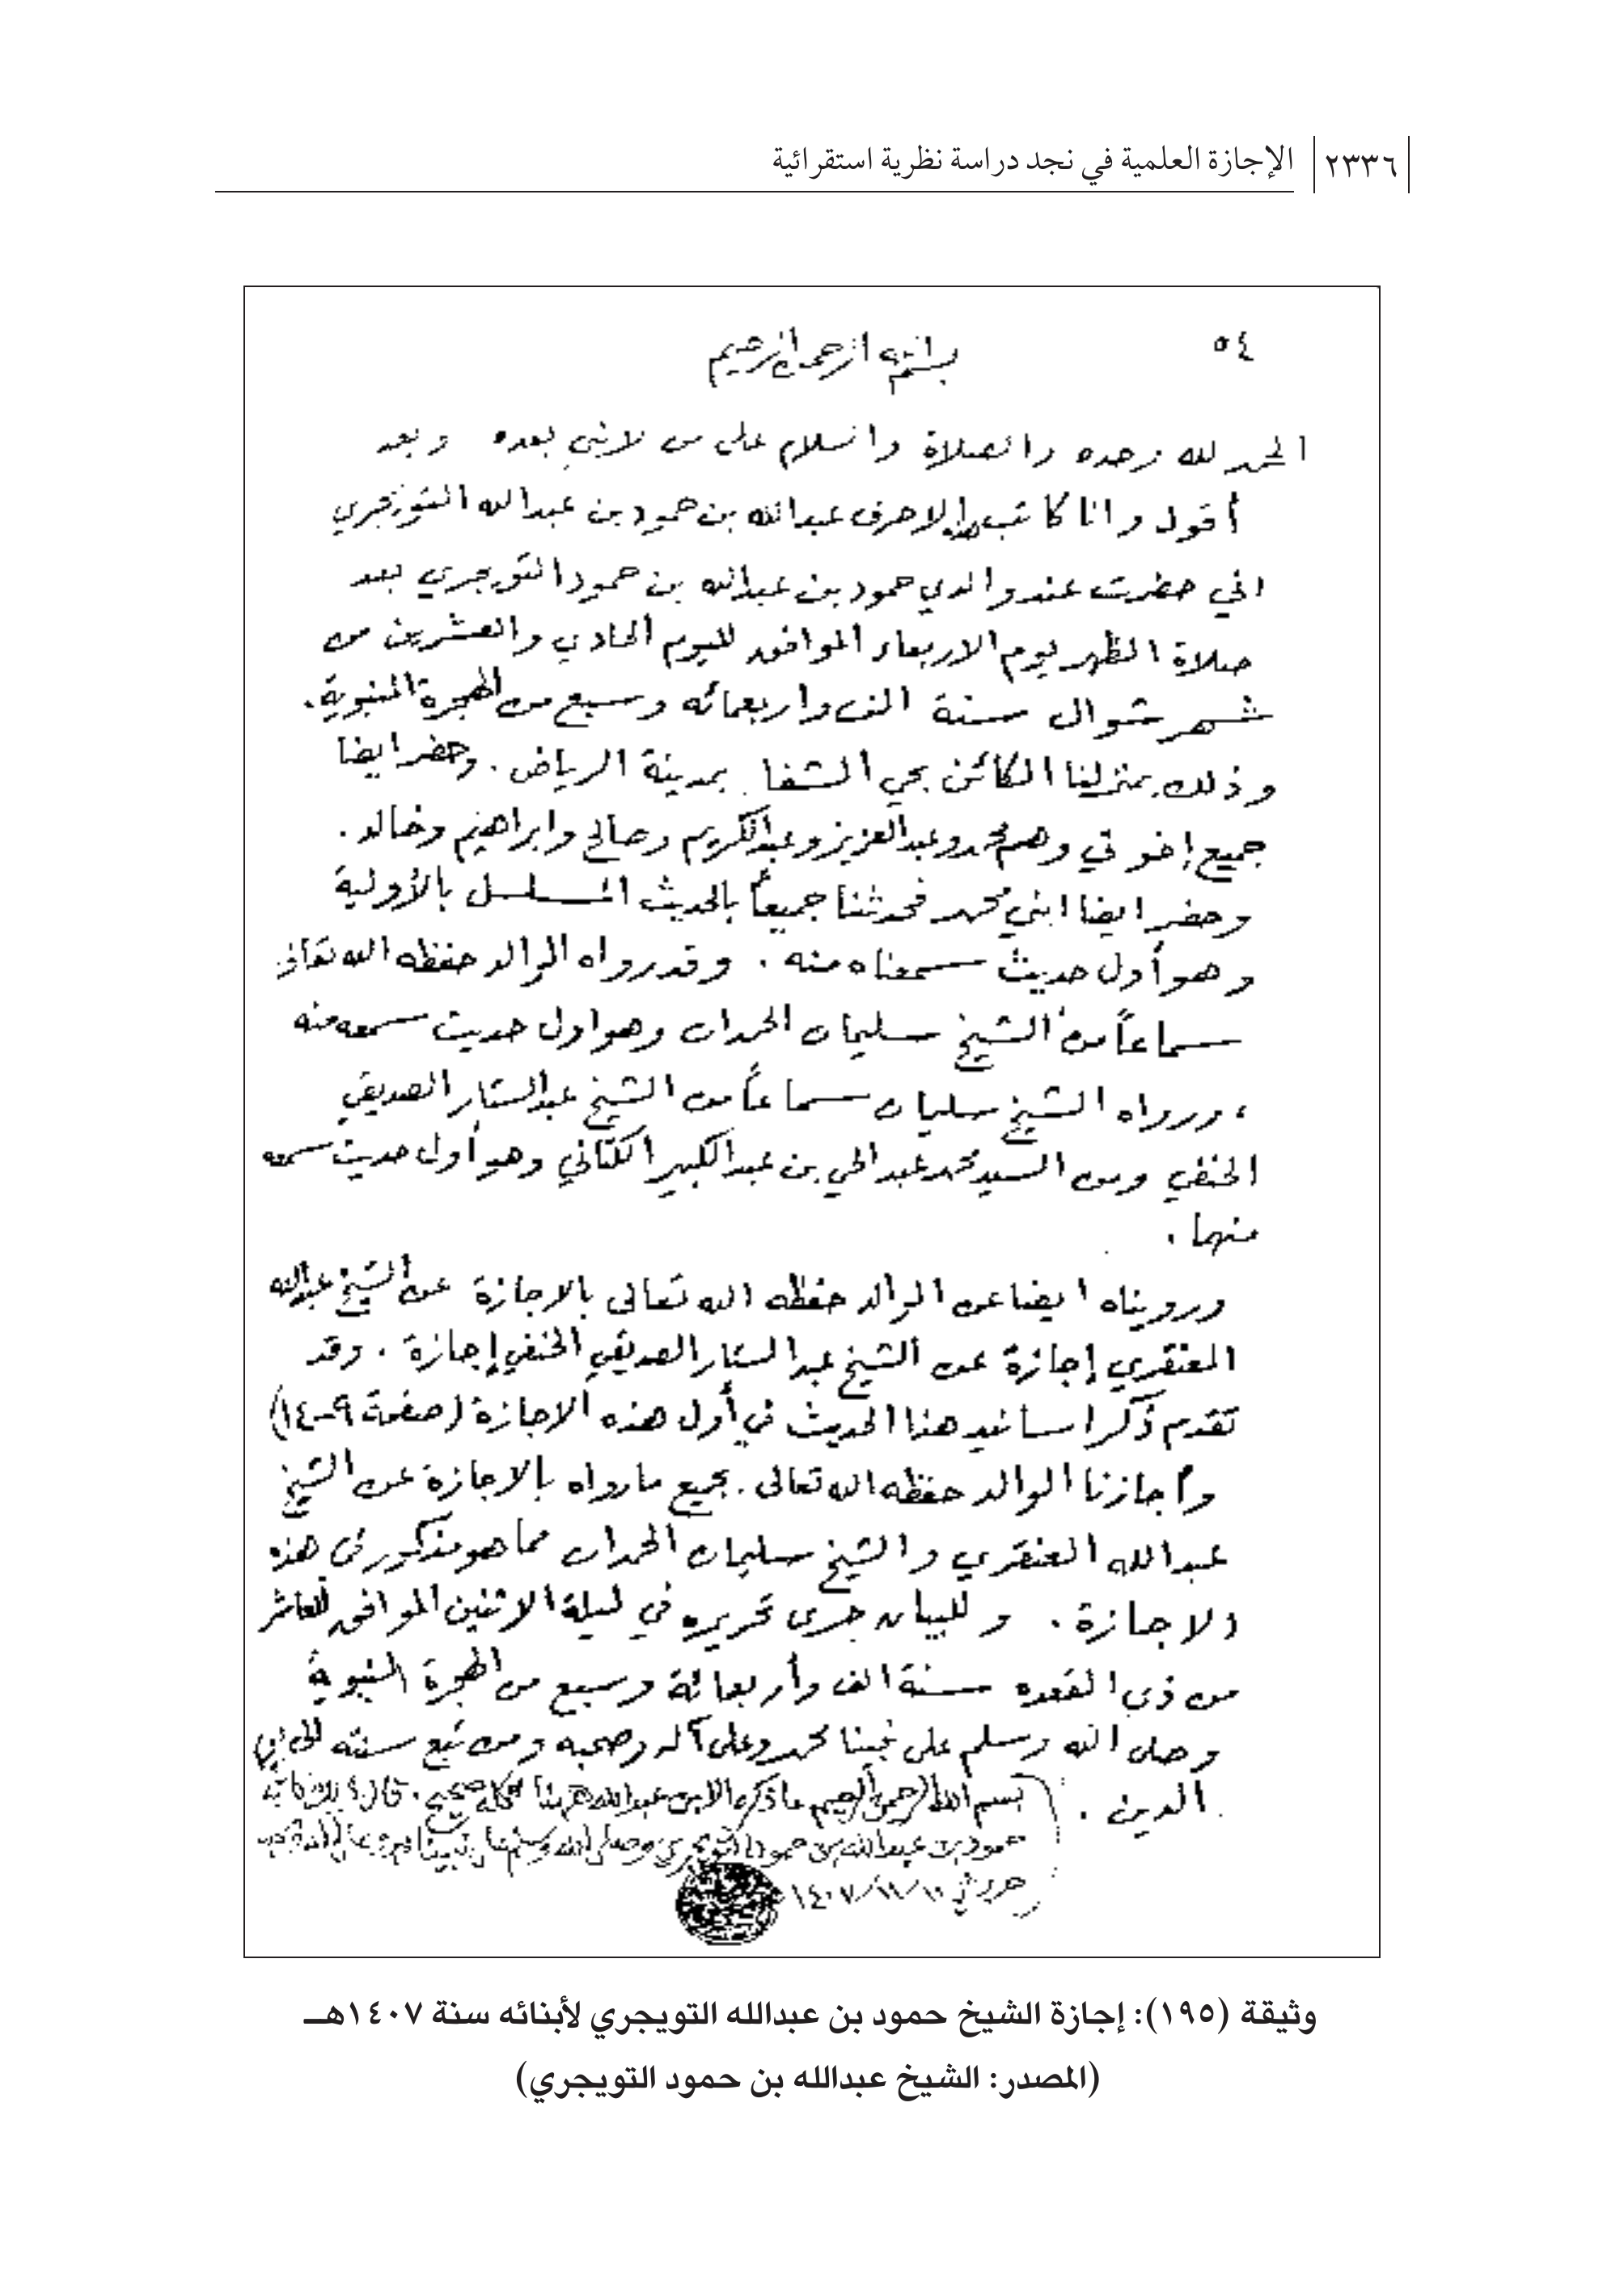 ٢٣٣٦ الإجازة العلمية في نجد دراسة نظرية استقرائية
٥٤
بسم الله الرحمن الرحيم
الحمد لله وحده والصلاة والسلام على من لا نبي بعده وبعد
أقول وانا كاتب هذه الاحرف عبدالله بن حمود بن عبدالله التويجري
اني حضرت عند والدي حمود بن عبدالله بن حمود التويجري بعد
صلاة الظهر ليوم الاربعاء الموافق لليوم الحادي والعشرين من
شهر شوال سنة الف واربعمائه وسبع من الهجرة النبوية.
وذلك بمنزلنا الكائن بحي الشفا بمدينة الرياض. وحضر ايضا
جميع إخوتي وهم محمد وعبدالعزيز وعبدالكريم وصالح وابراهيم وخالد.
وحضر ايضا ابني محمد فحدثنا جميعاً بالحديث المسلسل بالأولية
وهو أول حديث سمعناه منه. وقد رواه الوالد حفظه الله تعالى
سماعاً من الشيخ سليمان الحمدان وهو اول حديث سمعه منه
، ورواه الشيخ سليمان سماعاً من الشيخ عبدالستار الصديقي
الحنفي ومن السيد محمد عبدالحي بن عبدالكبير الكتاني وهو أول حديث سمعه
منهما.
ورويناه ايضا عن الوالد حفظه الله تعالى بالاجازة عن الشيخ عبدالله
العنقري إجازة عن الشيخ عبدالستار الصديقي الحنفي إجازة. وقد
تقدم ذكر اسانيد هذا الحديث في أول هذه الاجازة (صفحة ٩-١٤)
وأجازنا الوالد حفظه الله تعالى. بجميع مارواه بالاجازة عن الشيخ
عبدالله العنقري والشيخ سليمان الحمدان مما هو مذكور في هذه
الاجازة. وللبيان جرى تحريره في ليلة الاثنين الموافق للعاشر
من ذي القعده سنة الف وأربعمائة وسبع من الهجرة النبوية
وصلى الله وسلم على نبينا محمد وعلى آله وصحبه ومن تبع سنته الى يوم
الدين.
بسم الله الرحمن الرحيم ما ذكره الابن عبدالله هنا كله صحيح. قال ذلك كاتبه
حمود بن عبدالله بن حمود التويجري وصلى الله وسلم على نبينا محمد وعلى آله وصحبه
حرر في ١٤٠٧/١١/١٠
وثيقة (١٩٥): إجازة الشيخ حمود بن عبدالله التويجري لأبنائه سنة ١٤٠٧هـ
(المصدر: الشيخ عبدالله بن حمود التويجري)